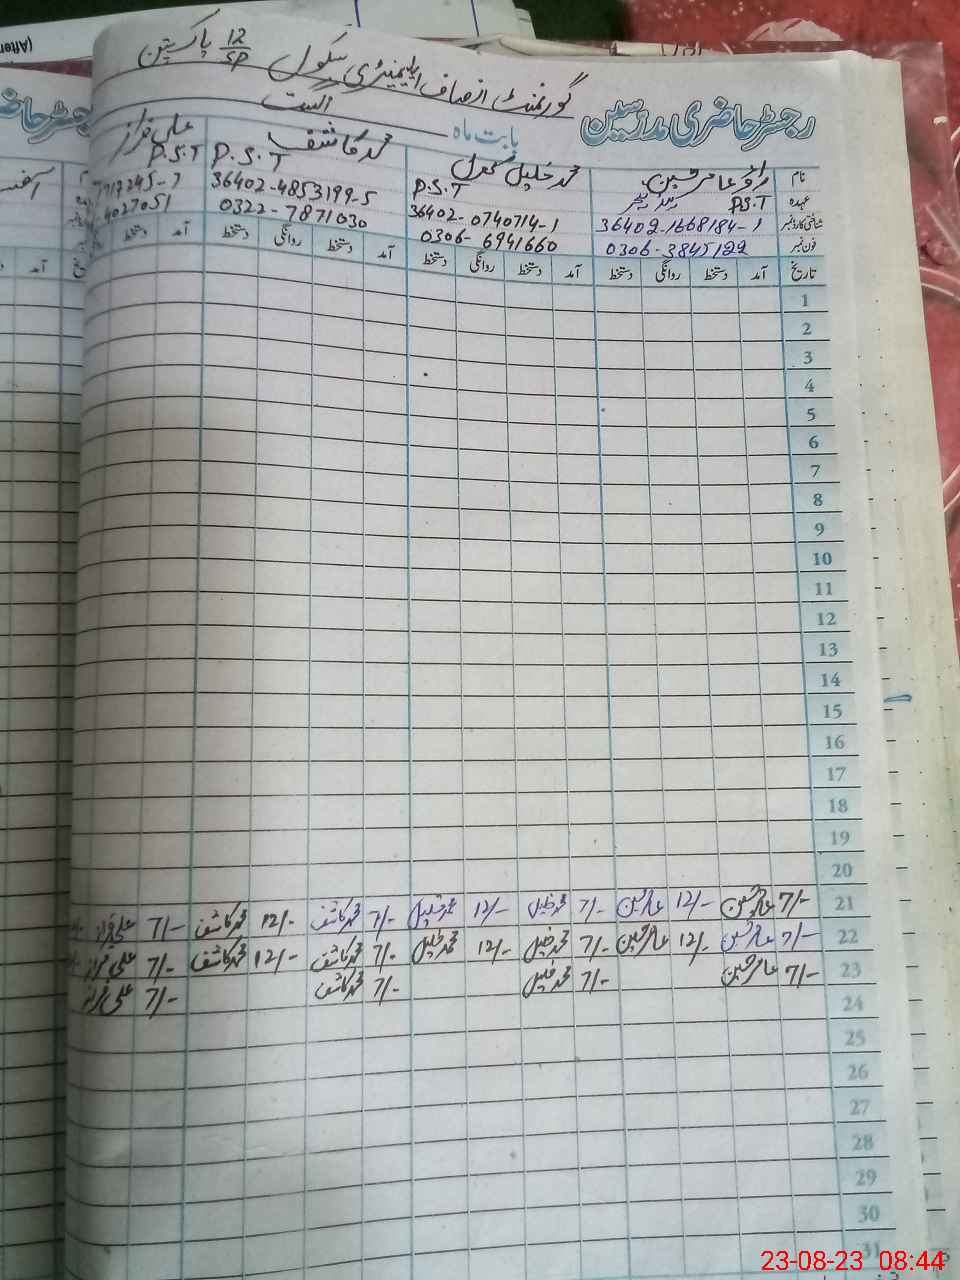 گورنمنٹ انصاف ایلیمنٹری سکول 12/SP پاکپتن
رجسٹر حاضری مدرسین
بابت ماہ اگست
نام راؤ عامر حسین محمد خلیل محمد کاشف علی فراز
عہدہ P.S.T ہیڈ ٹیچر P.S.T P.S.T P.S.T
شناختی کارڈ نمبر 36402-1668184-1 36402-0740714-1 36402-4853199-5
فون نمبر 0306-3845122 0306-6941660 0322-7871030 4027051
تاریخ آمد دستخط روانگی دستخط آمد دستخط روانگی دستخط آمد دستخط روانگی دستخط آمد دستخط
1
2
3
4
5
6
7
8
9
10
11
12
13
14
15
16
17
18
19
20
21 7/- عامر حسین 12/- عامر حسین 7/- محمد خلیل 12/- محمد خلیل 7/- محمد کاشف 12/- محمد کاشف 7/- علی فراز
22 7/- عامر حسین 12/- عامر حسین 7/- محمد خلیل 12/- محمد خلیل 7/- محمد کاشف 12/- محمد کاشف 7/- علی فراز
23 7/- عامر حسین 7/- محمد خلیل 7/- محمد کاشف 7/- علی فراز
24
25
26
27
28
29
30
31
23-08-23 08:44